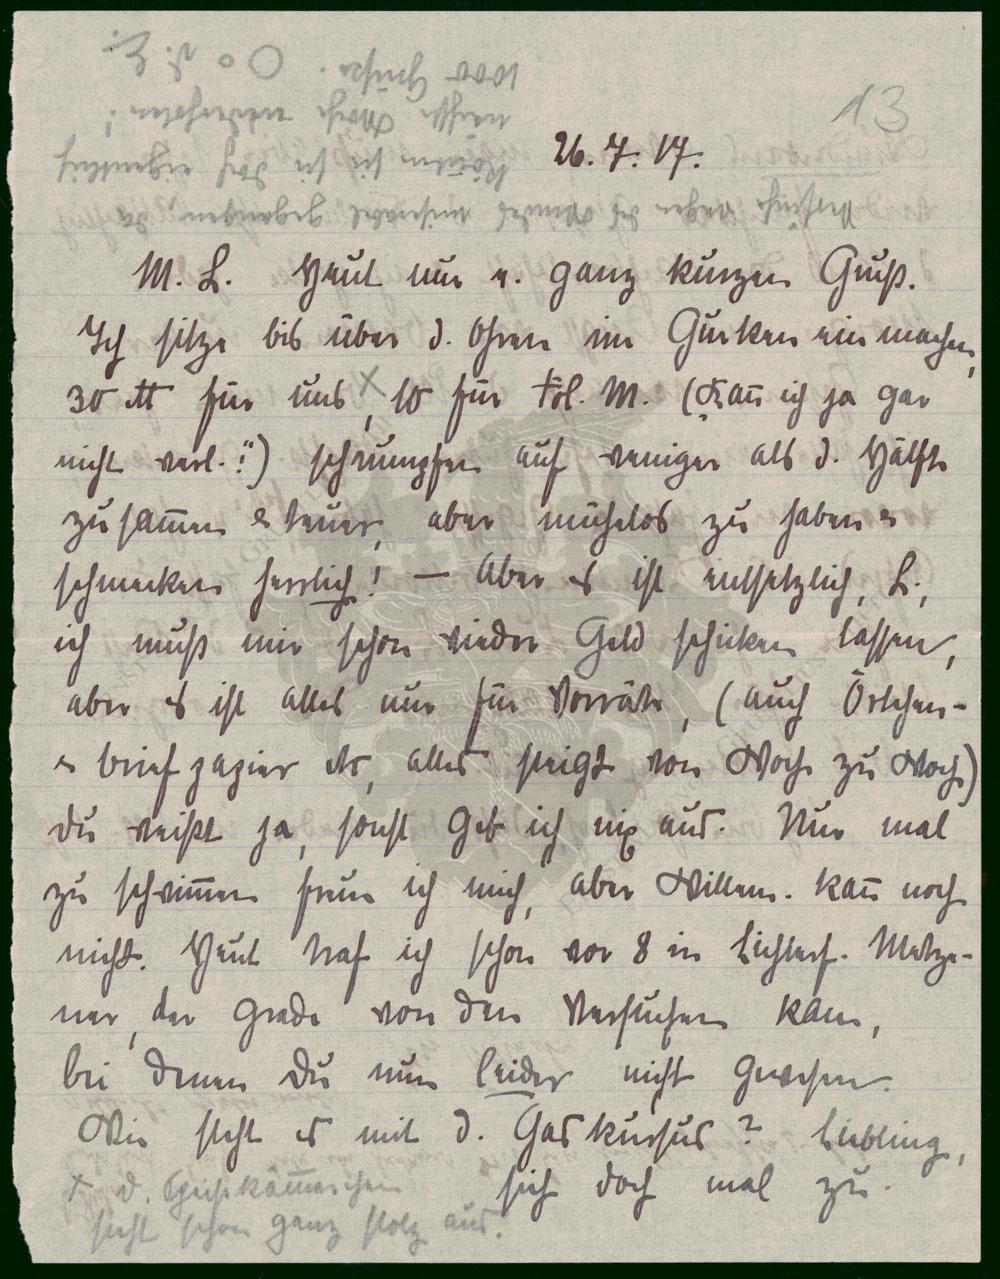 13
26. 7. 17.
M. L. Heut nur e. ganz kurzen Gruß.
Ich sitze bis über d. Ohren im Gurken einmachen,
30 ℔ für uns x, 10 für Frl. M. („Kan̄ ich ja gar
nicht verl.!“) schrumpfen auf weniger als d. Hälfte
zusam̄en & teuer, aber mühelos zu haben &
schmecken herrlich! — Aber es ist entsetzlich, L.,
ich muß mir schon wieder Geld schicken lassen,
aber es ist alles nur für Vorräte, (auch Örtchen-
& briefpapier etc, alles steigt von Woche zu Woche)
du weißt ja, sonst geb ich nix aus. Nur mal
zu schwim̄en freue ich mich, aber Willem. kan̄ noch
nicht. Heut traf ich schon vor 8 in Lichterf. Metze-
ner, der grade von den Versuchen kam,
bei denen Du nun leider nicht gewesen.
Wie steht es mit d. Gaskursus? Liebling,
sieh doch mal zu.
x d. Speisekäm̄erchen
sieht schon ganz stolz aus.
wegen des miserabel gegangen, da
könnten sie sie doch eigentlich
nächste Woche wiederholen!
1000 Grüße. O o D. L.